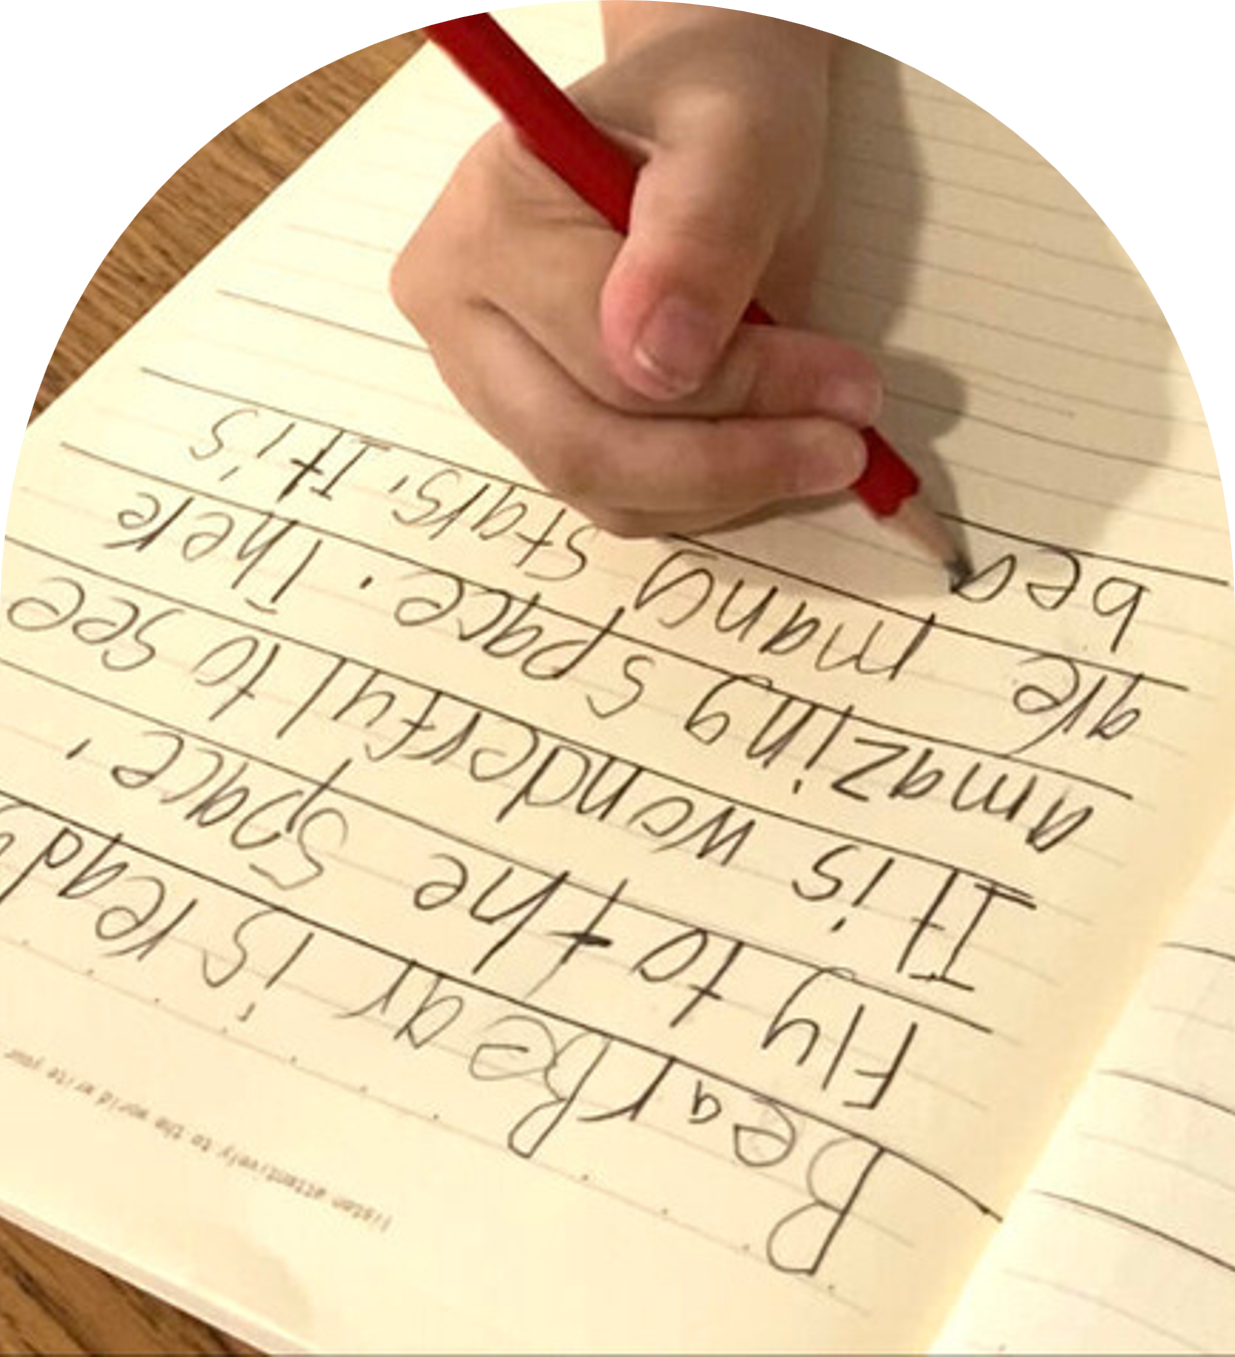 listen attentively to the world write your
Bear Bear is read
Fly to the space.
It is wonderful to see
amazing space. There
are many stars. It's
bea